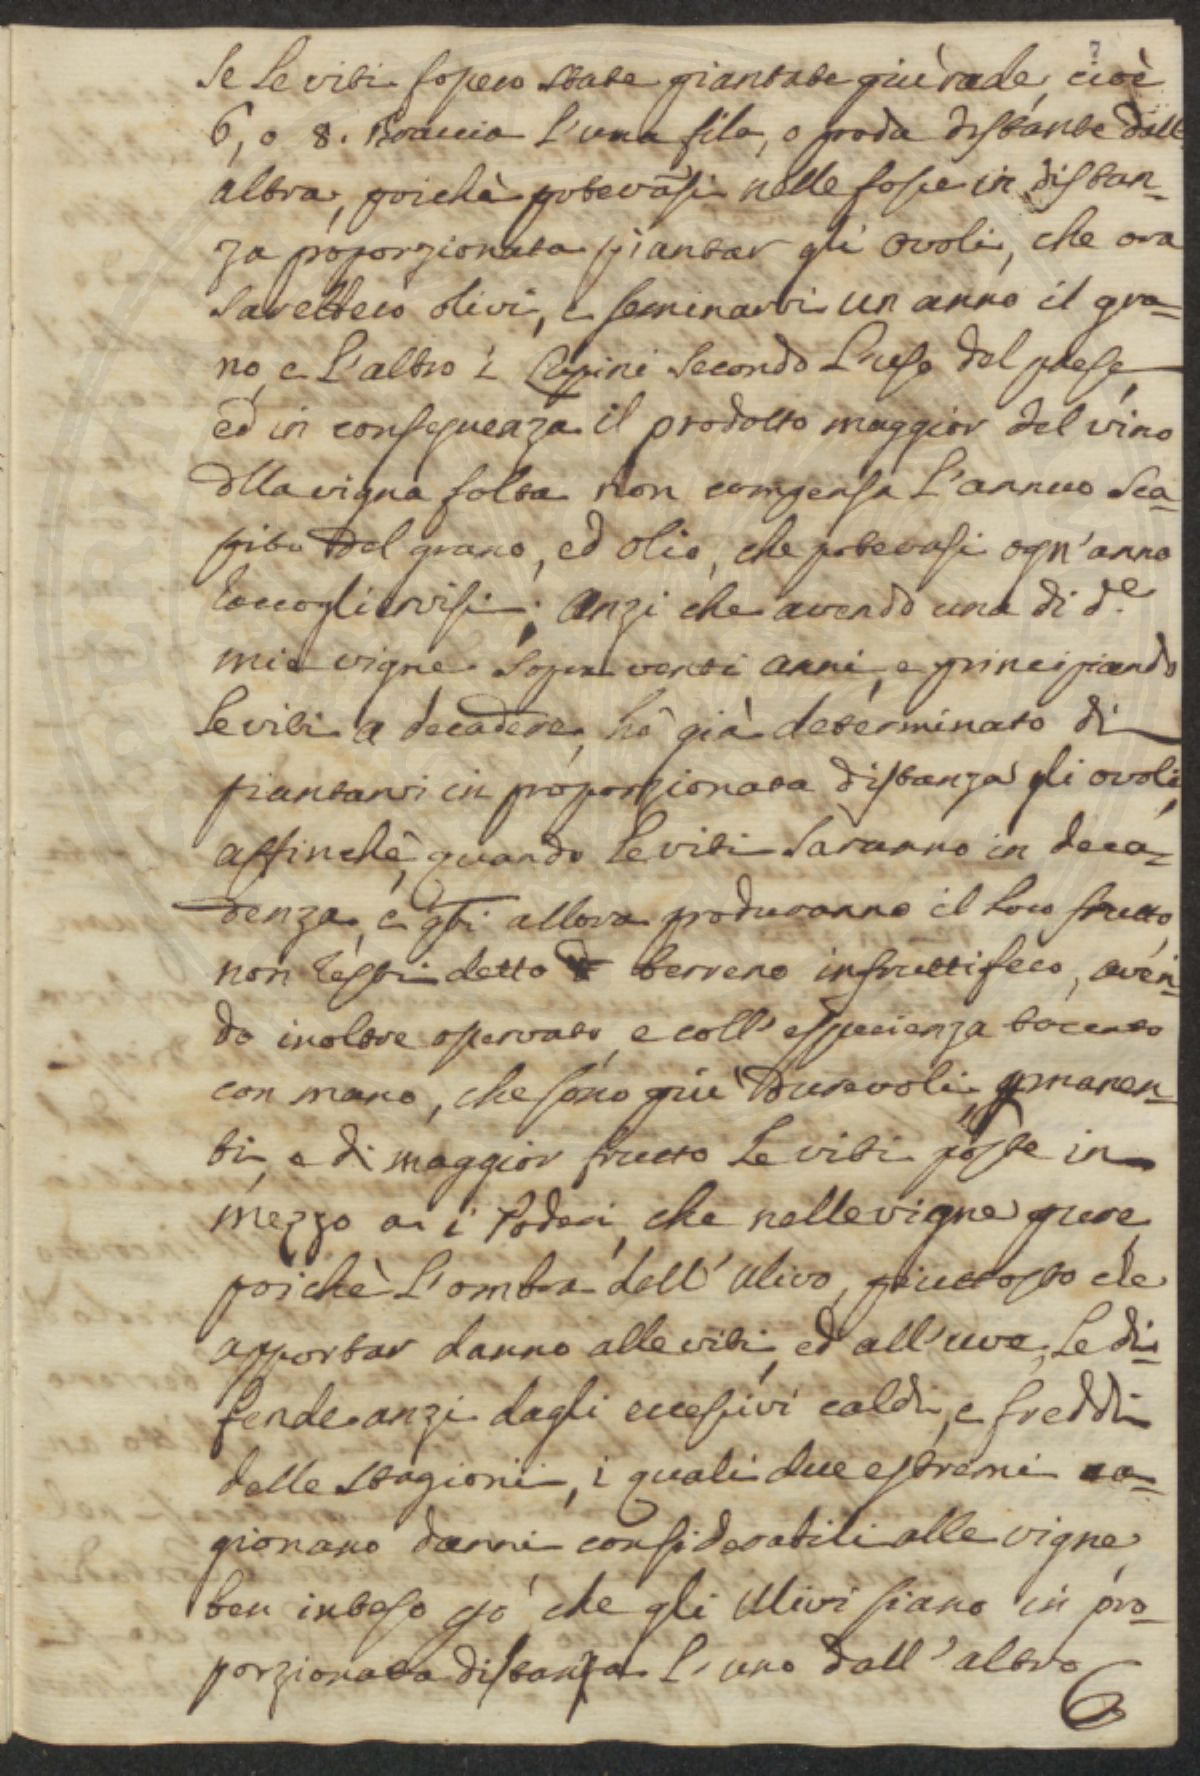 7
se le viti fossero state piantate più rade, cioè
6, o 8. Braccia l'una fila, o proda distante dall'
altra, poichè potevasi nelle fosse in distan-
za proporzionata piantar gli ovoli, che ora
sarebbero olivi, e seminarvi un anno il gra-
no, e l'altro i Lupini secondo l'uso del paese,
ed in conseguenza il prodotto maggior del vino
dlla vigna folta non compensa l'annuo sca-
pito del grano, ed olio, che potevasi ogn'anno
raccogliervisi; anzi che avendo una di d.e
mie vigne sopra venti anni, e principiando
le viti a decadere, hò già determinato di
piantarvi in proporzionata distanza gli ovoli,
affinchè, quando le viti saranno in deca-
denza, e gli allora produranno il loro frutto,
non resti detto terreno infruttifero, aven-
do inoltre osservato, e coll'esperienza toccato
con mano, che sono più durevoli, pmanen-
ti, e di maggior frutto le viti poste in
mezzo a i Poderi, che nelle vigne pure,
poichè l'ombra dell'ulivo, piuttosto che
apportar danno alle viti, ed all'uva, le di-
fende anzi dagli eccessivi caldi, e freddi
delle stagioni, i quali due estremi ca-
gionano danni considerabili alle vigne,
ben inteso però che gli Ulivi siano in pro-
porzionata distanza l'uno dall'altro